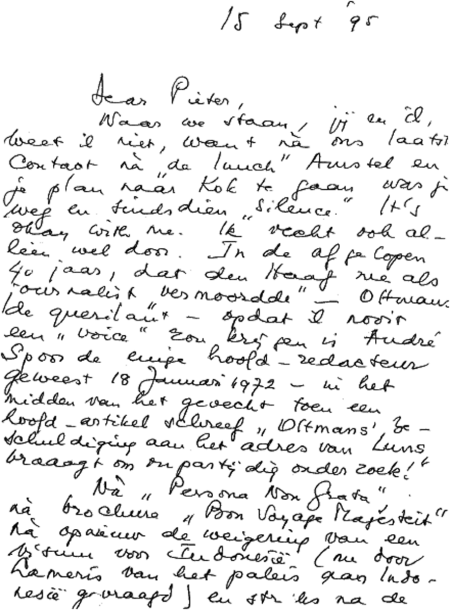 15 Sept '95
Dear Pieter,
Waar we staan, jij en ik,
weet ik niet, want nà ons laatst
Contact nà „de lunch" Amstel en
je plan naar Kok te gaan was je
weg en sindsdien „silence." It's
okay with me. Ik vecht ook al-
leèn wel door. In de afgelopen
40 jaar, dat den Haag me als
journalist „vermoordde" — Oltmans
de querilant — opdat ik nooit
een „voice" zou krijgen is André
Spoor de enige hoofd-redacteur
geweest 18 Januari 1972 — in het
midden van het gevecht toen een
hoofd-artikel schreef „Oltmans' be-
schuldiging aan het adres van Luns
vraagt om onpartijdig onderzoek!"
Nà „Persona Non Grata"
nà brochure „Bon Voyage Majesteit"
nà opnieuw de weigering van een
visum voor Indonesië (nu door
van het paleis aan Indo-
nesië gevraagd) en na de